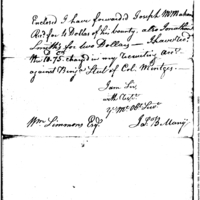 Enclosed I have forwarded Joseph McMahan
Rect for 4 Dollars of his bounty. also Jonathan
Smith's for two Dollars — I have recd
the 18.75 charged in my recruiting acct
against Serjt Stut of Col. Mentges.
I am Sir,
with respt.
yr Mo. Obt Servt
Wm Simmons Esqr